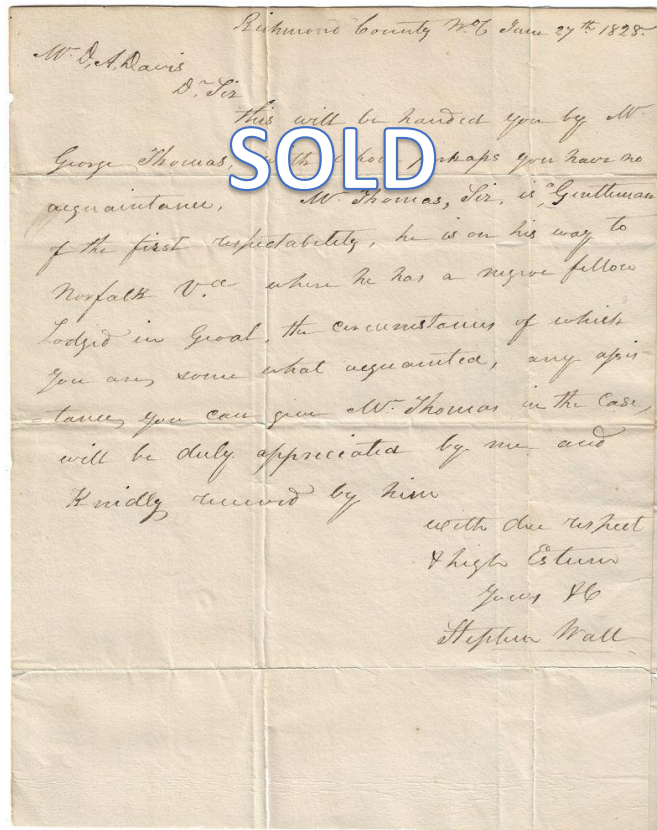 Richmond County N.C June 27th 1828.
Mr. D, A, Davis
Dr Sir
This will be handed you by Mr
George Thomas, with whom perhaps you have no
SOLD
acquaintance. Mr. Thomas, Sir, is a Gentleman
of the first respectability, he is on his way to
Norfolk Va where he has a negroe fellow
Lodged in Goal, the circumstances of which
you are, some what acquainted, any assis-
tance, you can give Mr. Thomas in the case,
will be duly appreciated by me and
Kindly received by him
with due respect
& high Esteem
Yours &C
Stephen Wall